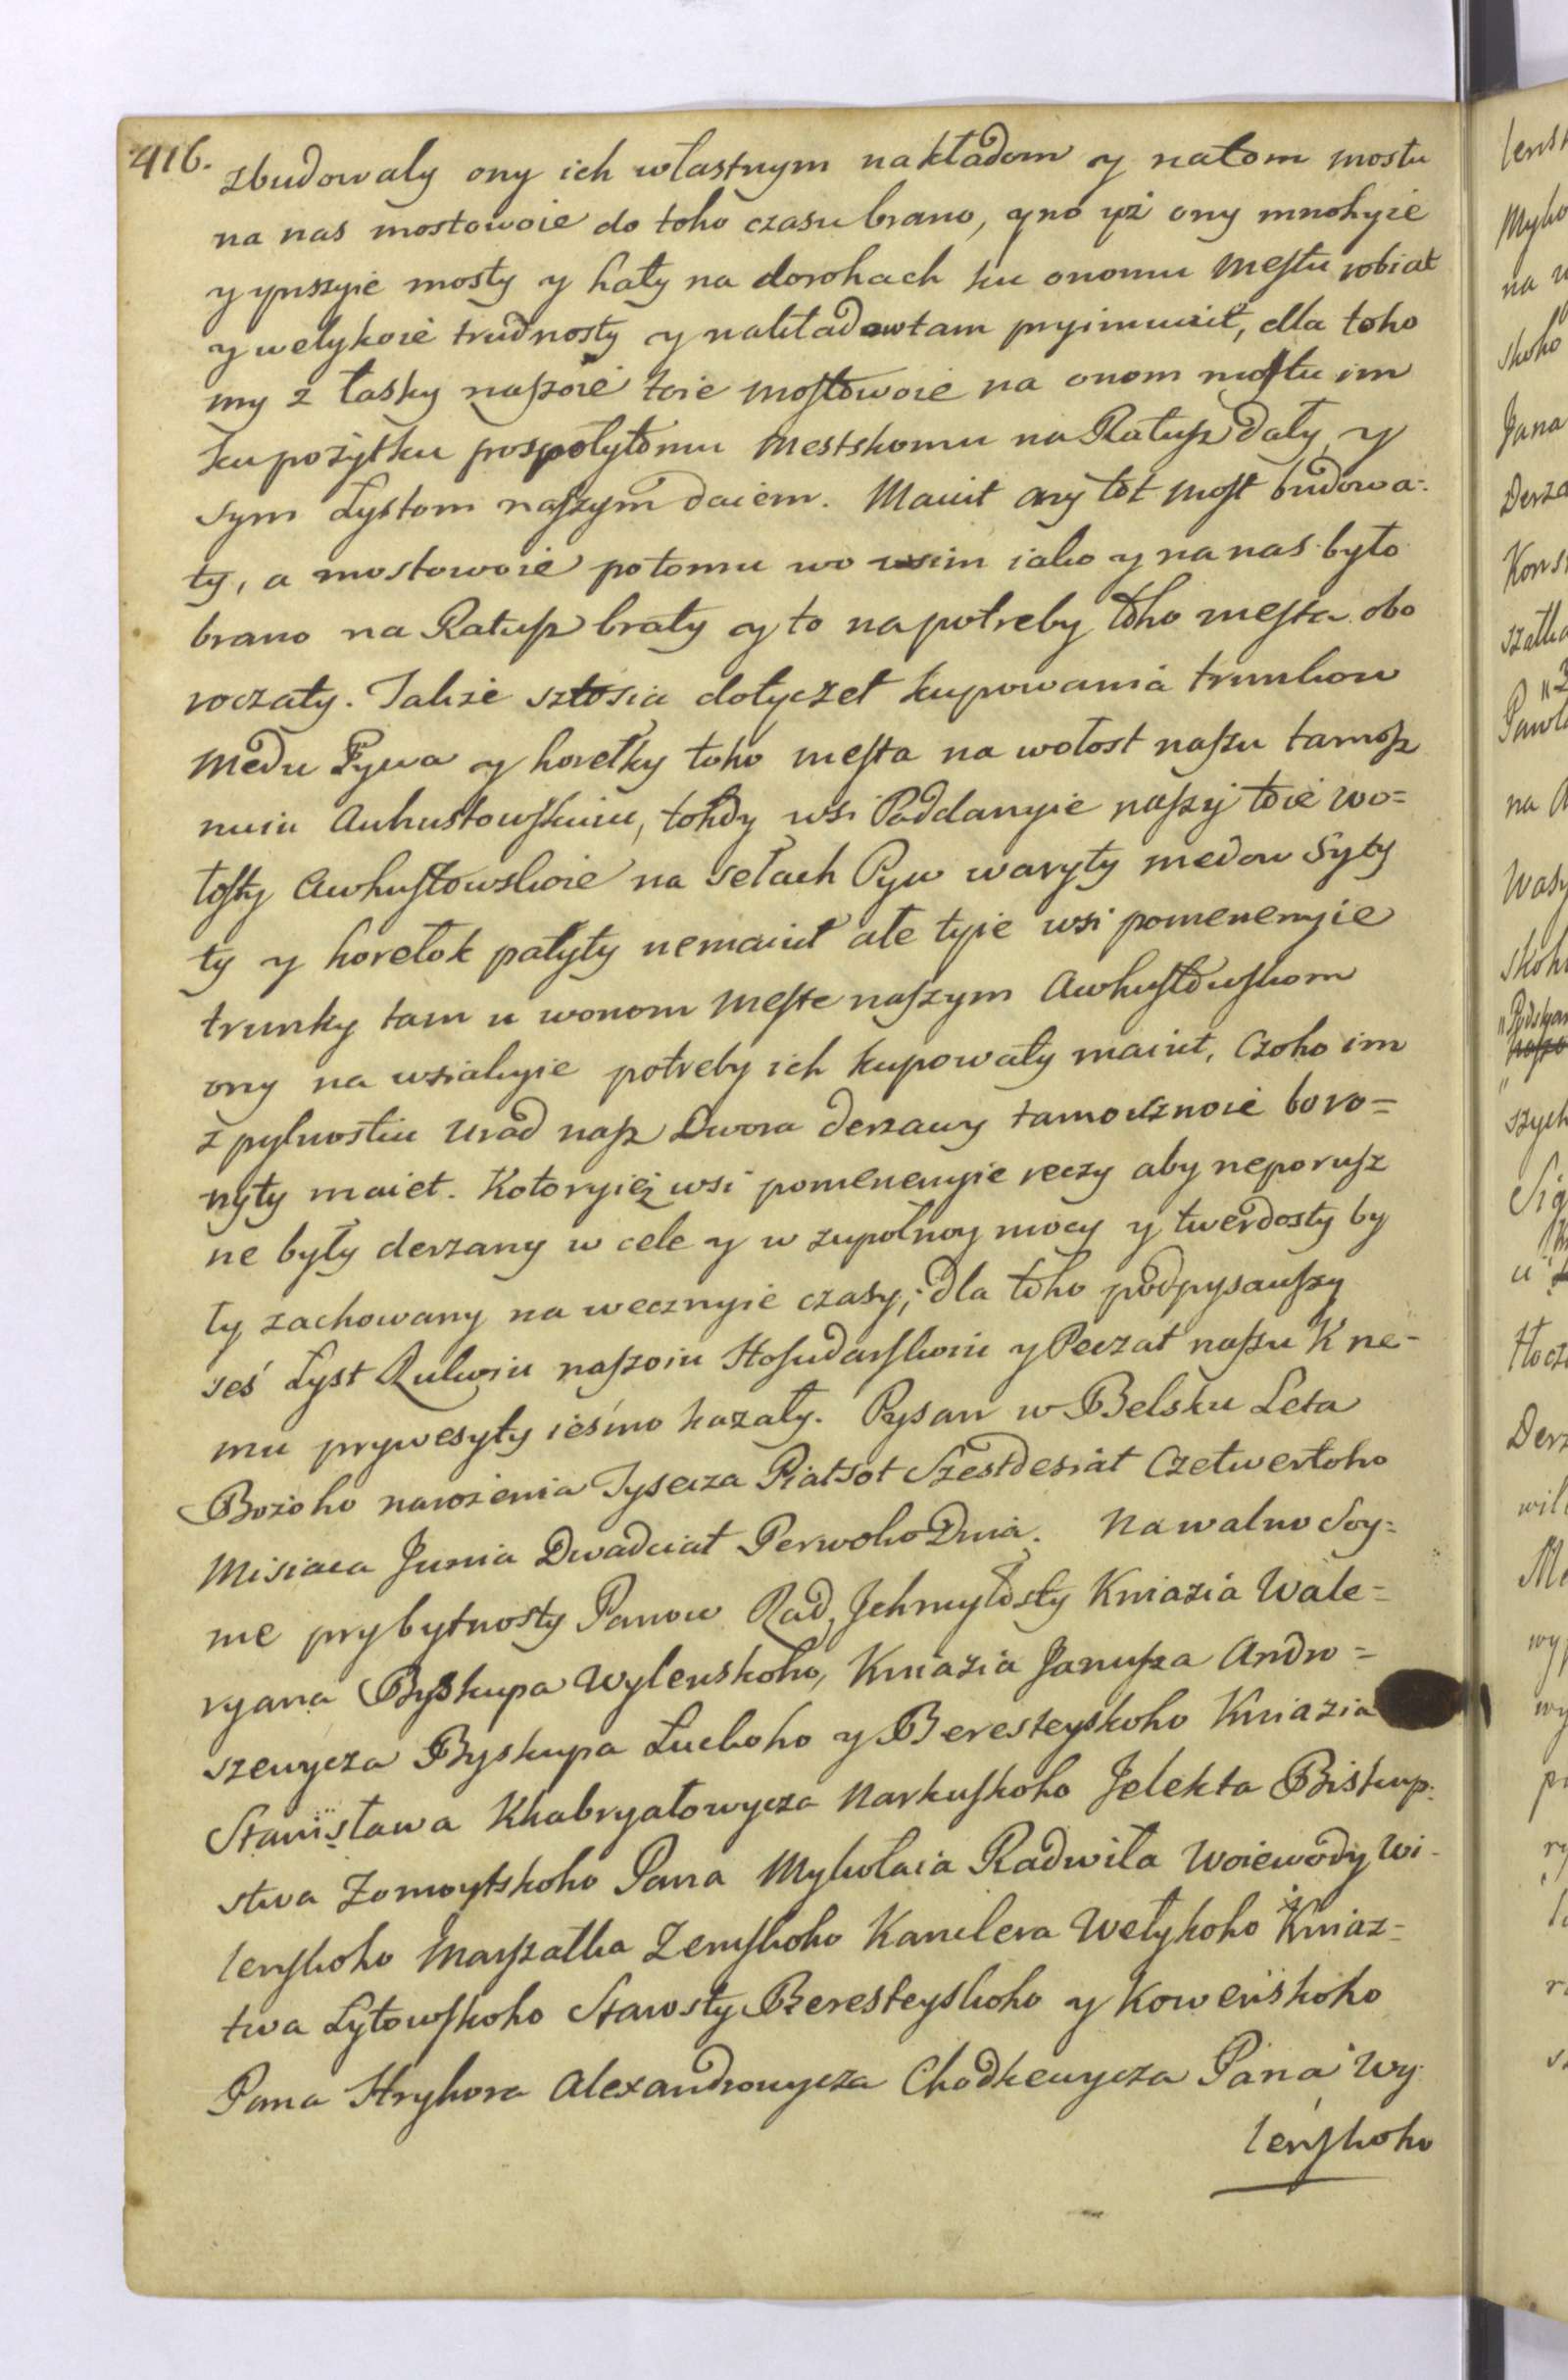 416.
zbudowaly ony ich włastnym nakładom y natom mostu
na nas mostowoie do toho czasu brano, yno yż ony mnohyie
y ynszyie mosty y haty na dorohach ku onomu Mestu robiat
y welykoie trudnosty y nakładow tam pryimuiut, dla toho
my z łasky naszoie toie mostowoie na onom mostu im
ku pożytku pospolytomu Mestskomu na Ratusz dały y
sym Lystom naszym daiem. Maiut ony tot most budowa-
ty, a mostowoie potomu wo wsim iako y na nas było
brano na Ratusz braty y to na potreby toho mesta obo
roczaty. Także sztosia dotyczet kupowania trunkow
Medu Pywa y horełky toho mesta na wołost naszu tamosz
nuiu Auhustowskuiu, tohdy wsi Poddanyie naszy toie wo=
łosty Awhustowskoie na sełach Pyw waryty medow Syty
ty y horełok pałyty nemaiut ale tyie wsi pomenenyie
trunky tam u wonom Meste naszym Awhustowskom
ony na wsiakyie potreby ich kupowaty maiut, Czoho im
z pylnostiu Urad nasz Dwora derzawy tamosznoie boro=
nyty maiet. Kotoryież wsi pomenenyie reczy aby neporusz
ne były derzany w cele y w zupołnoy mocy y twerdosty by
ty zachowany na wecznyie czasy, dla toho podpysauszy
seś Lyst Rukoiu naszoiu Hosudarskoiu y Peczat naszu K ne-
mu prywesyty ieśmo kazały. Pysan w Belsku Leta
Bożoho narożenia Tysecza Piatsot Szestdesiat Czetwertoho
Misiaca Junia Dwadciat Perwoho Dnia. Na walno Soy=
me prybytnosty Panow Rad, Jehmyłosty Kniazia Wale=
ryana Byskupa Wylenskoho, Kniazia Janusza Andro=
szewycza Byskupa Łuckoho y Beresteyskoho Kniazia
Stanisława Khabryałowycza Narkuskoho Jelekta Biskup-
stwa Zomoytskoho Pana Mykołaia Radwiła Woiewody Wi-
lenskoho Marszałka Zemskoho Kanclera Wełykoho Kniaz=
twa Lytowskoho Starosty Beresteyskoho y Kowenskoho
Pana Hryhora Alexandrowycza Chodkewycza Pana Wy
lenskoho